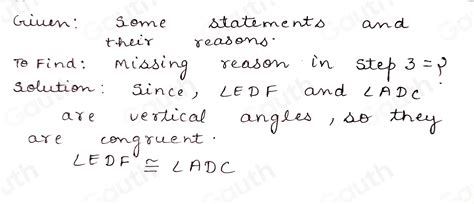 Given: Some statements and
their reasons.
To Find: Missing reason in Step 3 = ?
Solution: Since, ∠EDF and ∠ADC
are vertical angles, so they
are congruent.
∠EDF ≅ ∠ADC